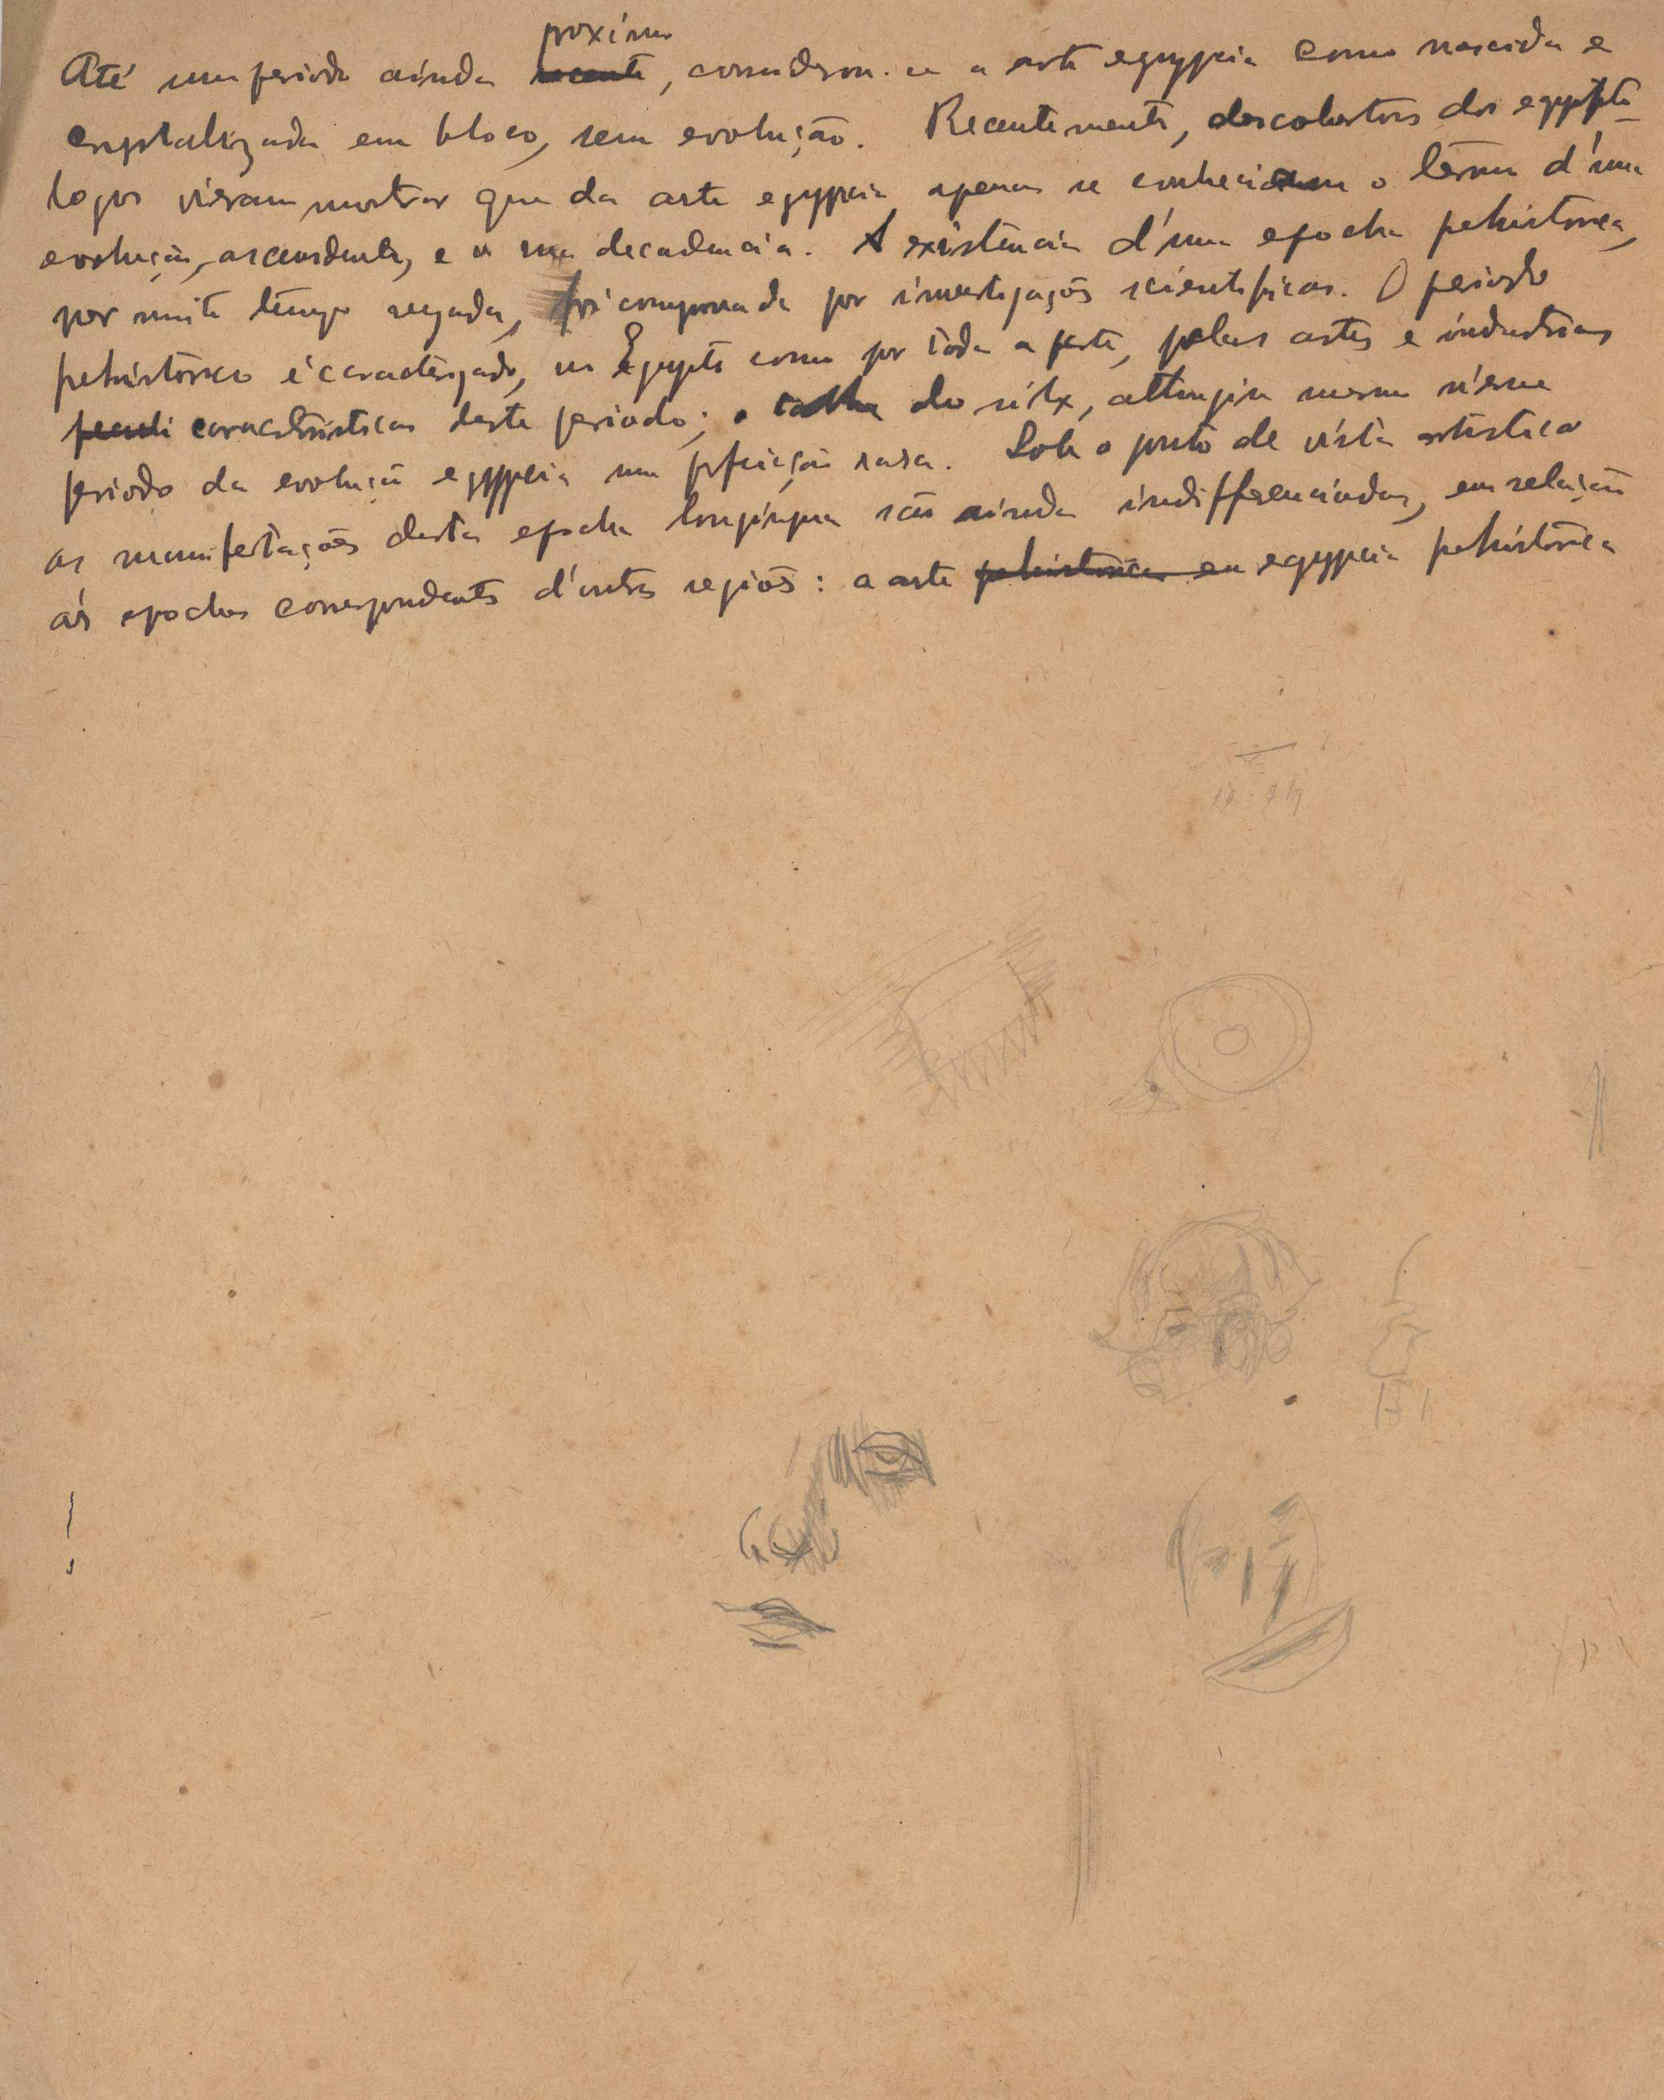 proximo
Até um periodo ainda recente, considerou-se a arte egypcia como nascida e
crystalizada em bloco, sem evolução. Recentemente, descobertas dos egypto-
logos vieram mostrar que da arte egypcia apenas se conhecia o termo d'uma
evolução, ascendente, e a sua decadencia. A existencia d'uma epocha prehistorica,
por muito tempo negada, foi comprovada por investigações scientificas. O periodo
prehistorico é caracterizado, no Egypto como por toda a parte, pelas artes e industrias
peculi caracteristicas deste periodo; o talhe do silex, attingiu mesmo n'esse
periodo da evolução egypcia uma perfeição rara. Sob o ponto de vista artistico
as manifestações desta epocha longinqua são ainda indifferenciadas, em relação
ás epochas correspondentes d'outras regiões: a arte prehistorica em egypcia prehistorica